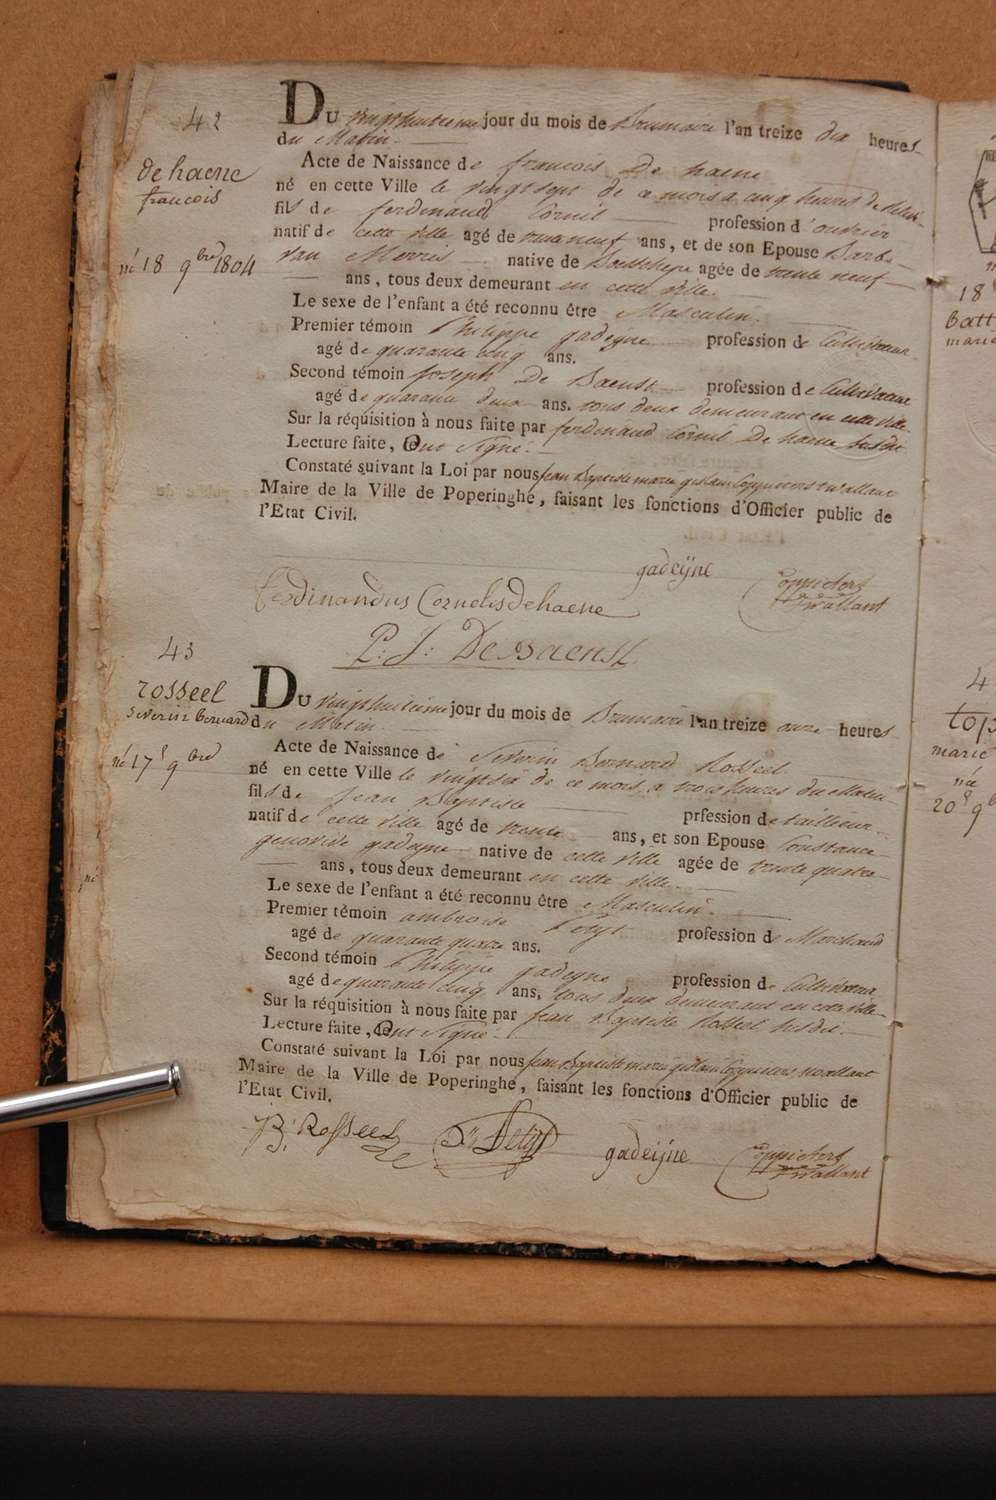 42
de haene
francois
né 18 9bre 1804
DU vingthuitieme jour du mois de Brumaire l'an treize dix heures
du Matin.
Acte de Naissance de francois De haene
né en cette Ville le vingt sept de ce mois a cinq heures de
fils de ferdinand Cornil profession d'ouvrier
natif de cette ville agé de neuf ans, et de son Epouse Barbe
Van Merris native de agée de trente neuf
ans, tous deux demeurant en cette ville.
Le sexe de l'enfant a été reconnu être Masculin.
Premier témoin Philippe gadeyne profession de Cultivateur
agé de quarante cinq ans.
Second témoin Joseph De Baenst profession de Cultivateur
agé de quarante deux ans. tous deux demeurant en cette ville
Sur la réquisition à nous faite par ferdinand Cornil De haene susdit
Lecture faite, Ont Signé.
Constaté suivant la Loi par nous Jean Baptiste marie
Maire de la Ville de Poperinghe, faisant les fonctions d'Officier public de
l'Etat Civil.
gadeijne
ferdinandus Cornelis dehaene
P: J: DeBaenst
43
rosseel
Severin bernard
né 17e 9bre
DU vingthuitieme jour du mois de Brumaire l'an treize onze heures
du Matin
Acte de Naissance de Severin Bernard Rosseel
né en cette Ville le vingt six de ce mois a trois heures du Matin
fils de Jean Baptiste prfession de tailleur
natif de cette ville agé de trente ans, et son Epouse Constance
genovive gadeyne native de cette ville agée de trente quatre
ans, tous deux demeurant en cette ville.
Le sexe de l'enfant a été reconnu être Masculin.
Premier témoin ambroise profession de Marchand
agé de quarante quatre ans.
Second témoin Philippe gadeyne profession de Cultivateur
agé de quarante cinq ans, tous deux demeurant en cette ville
Sur la réquisition à nous faite par Jean Baptiste Rosseel susdit.
Lecture faite, Ont Signé.
Constaté suivant la Loi par nous Jean Baptiste marie
Maire de la Ville de Poperinghe, faisant les fonctions d'Officier public de
l'Etat Civil.
B. Rosseel
gadeijne
18
Batt
marie
4
top
marie
née
20e 9b